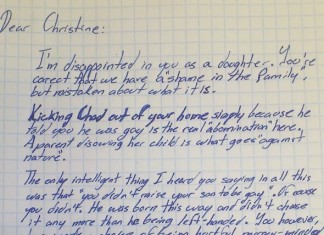 Dear Christine:
I'm disappointed in you as a daughter. You're
corect that we have a "shame in the family",
but mistaken about what it is.
Kicking Chad out of your home simply because he
told you he was gay is the real "abomination" here.
A parent disowing her child is what goes "against
nature".
The only intelligent thing I heard you saying in all this
was that "you didn't raise your son to be gay". Of couse
you didn't. He was born this way and didn't choose
it any more than he being left-handed. You however,
of being hurtful, narrow-minded